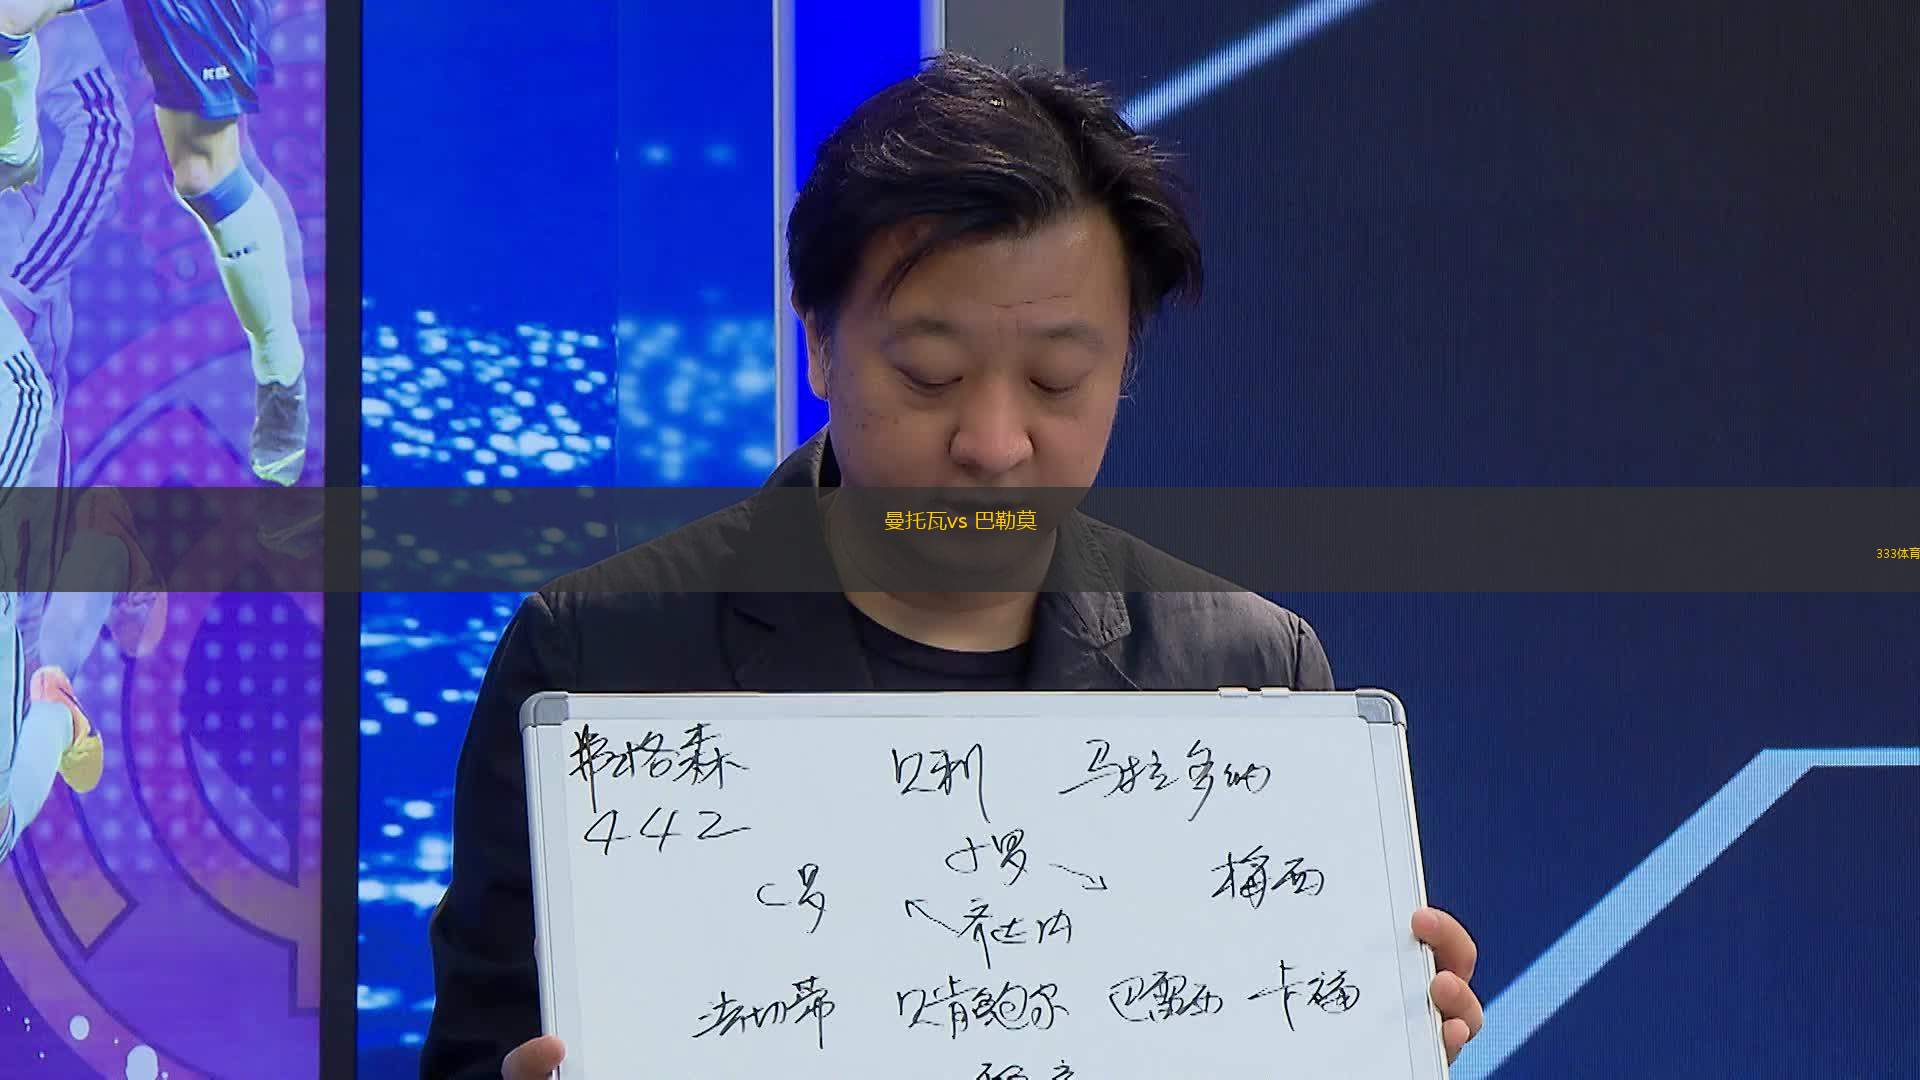 曼托瓦vs 巴勒莫
333体育
弗格森 贝利 马拉多纳
442
小罗
C罗 梅西
齐达内
法切蒂 贝肯鲍尔 巴雷西 卡福